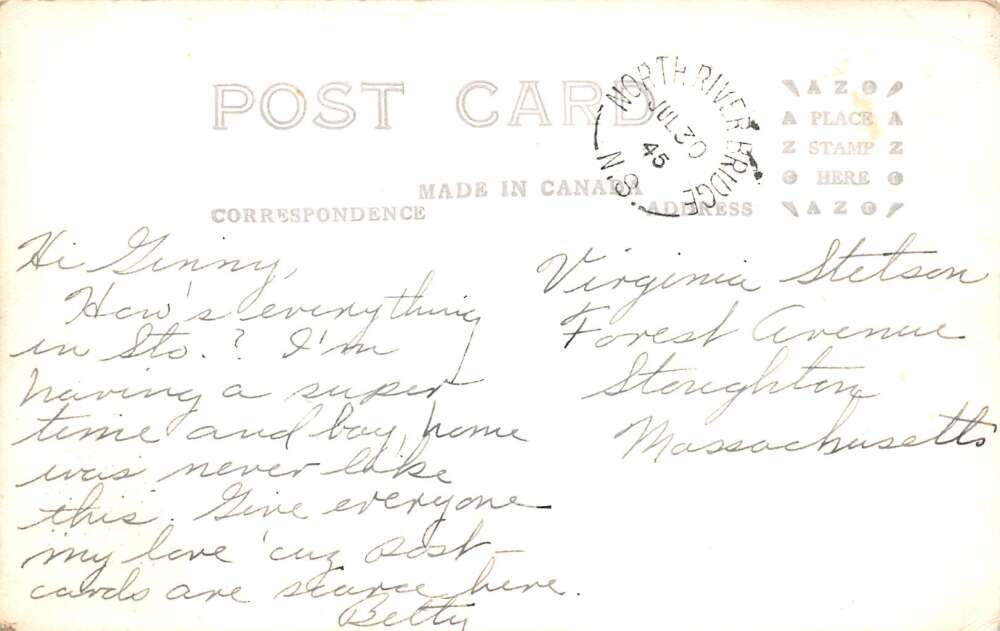 POST CARD
NORTH RIVER BRIDGE
JUL 30
45
N.S.
AZO
A PLACE A
Z STAMP Z
O HERE O
AZO
MADE IN CANADA
CORRESPONDENCE
ADDRESS
Hi Ginny,
How's everything
in Sto.? I'm
having a super
time and boy, home
was never like
this. Give everyone
my love 'cuz post-
cards are scarce here.
Betty
Virginia Stetson
Forest Avenue
Stoughton
Massachusetts